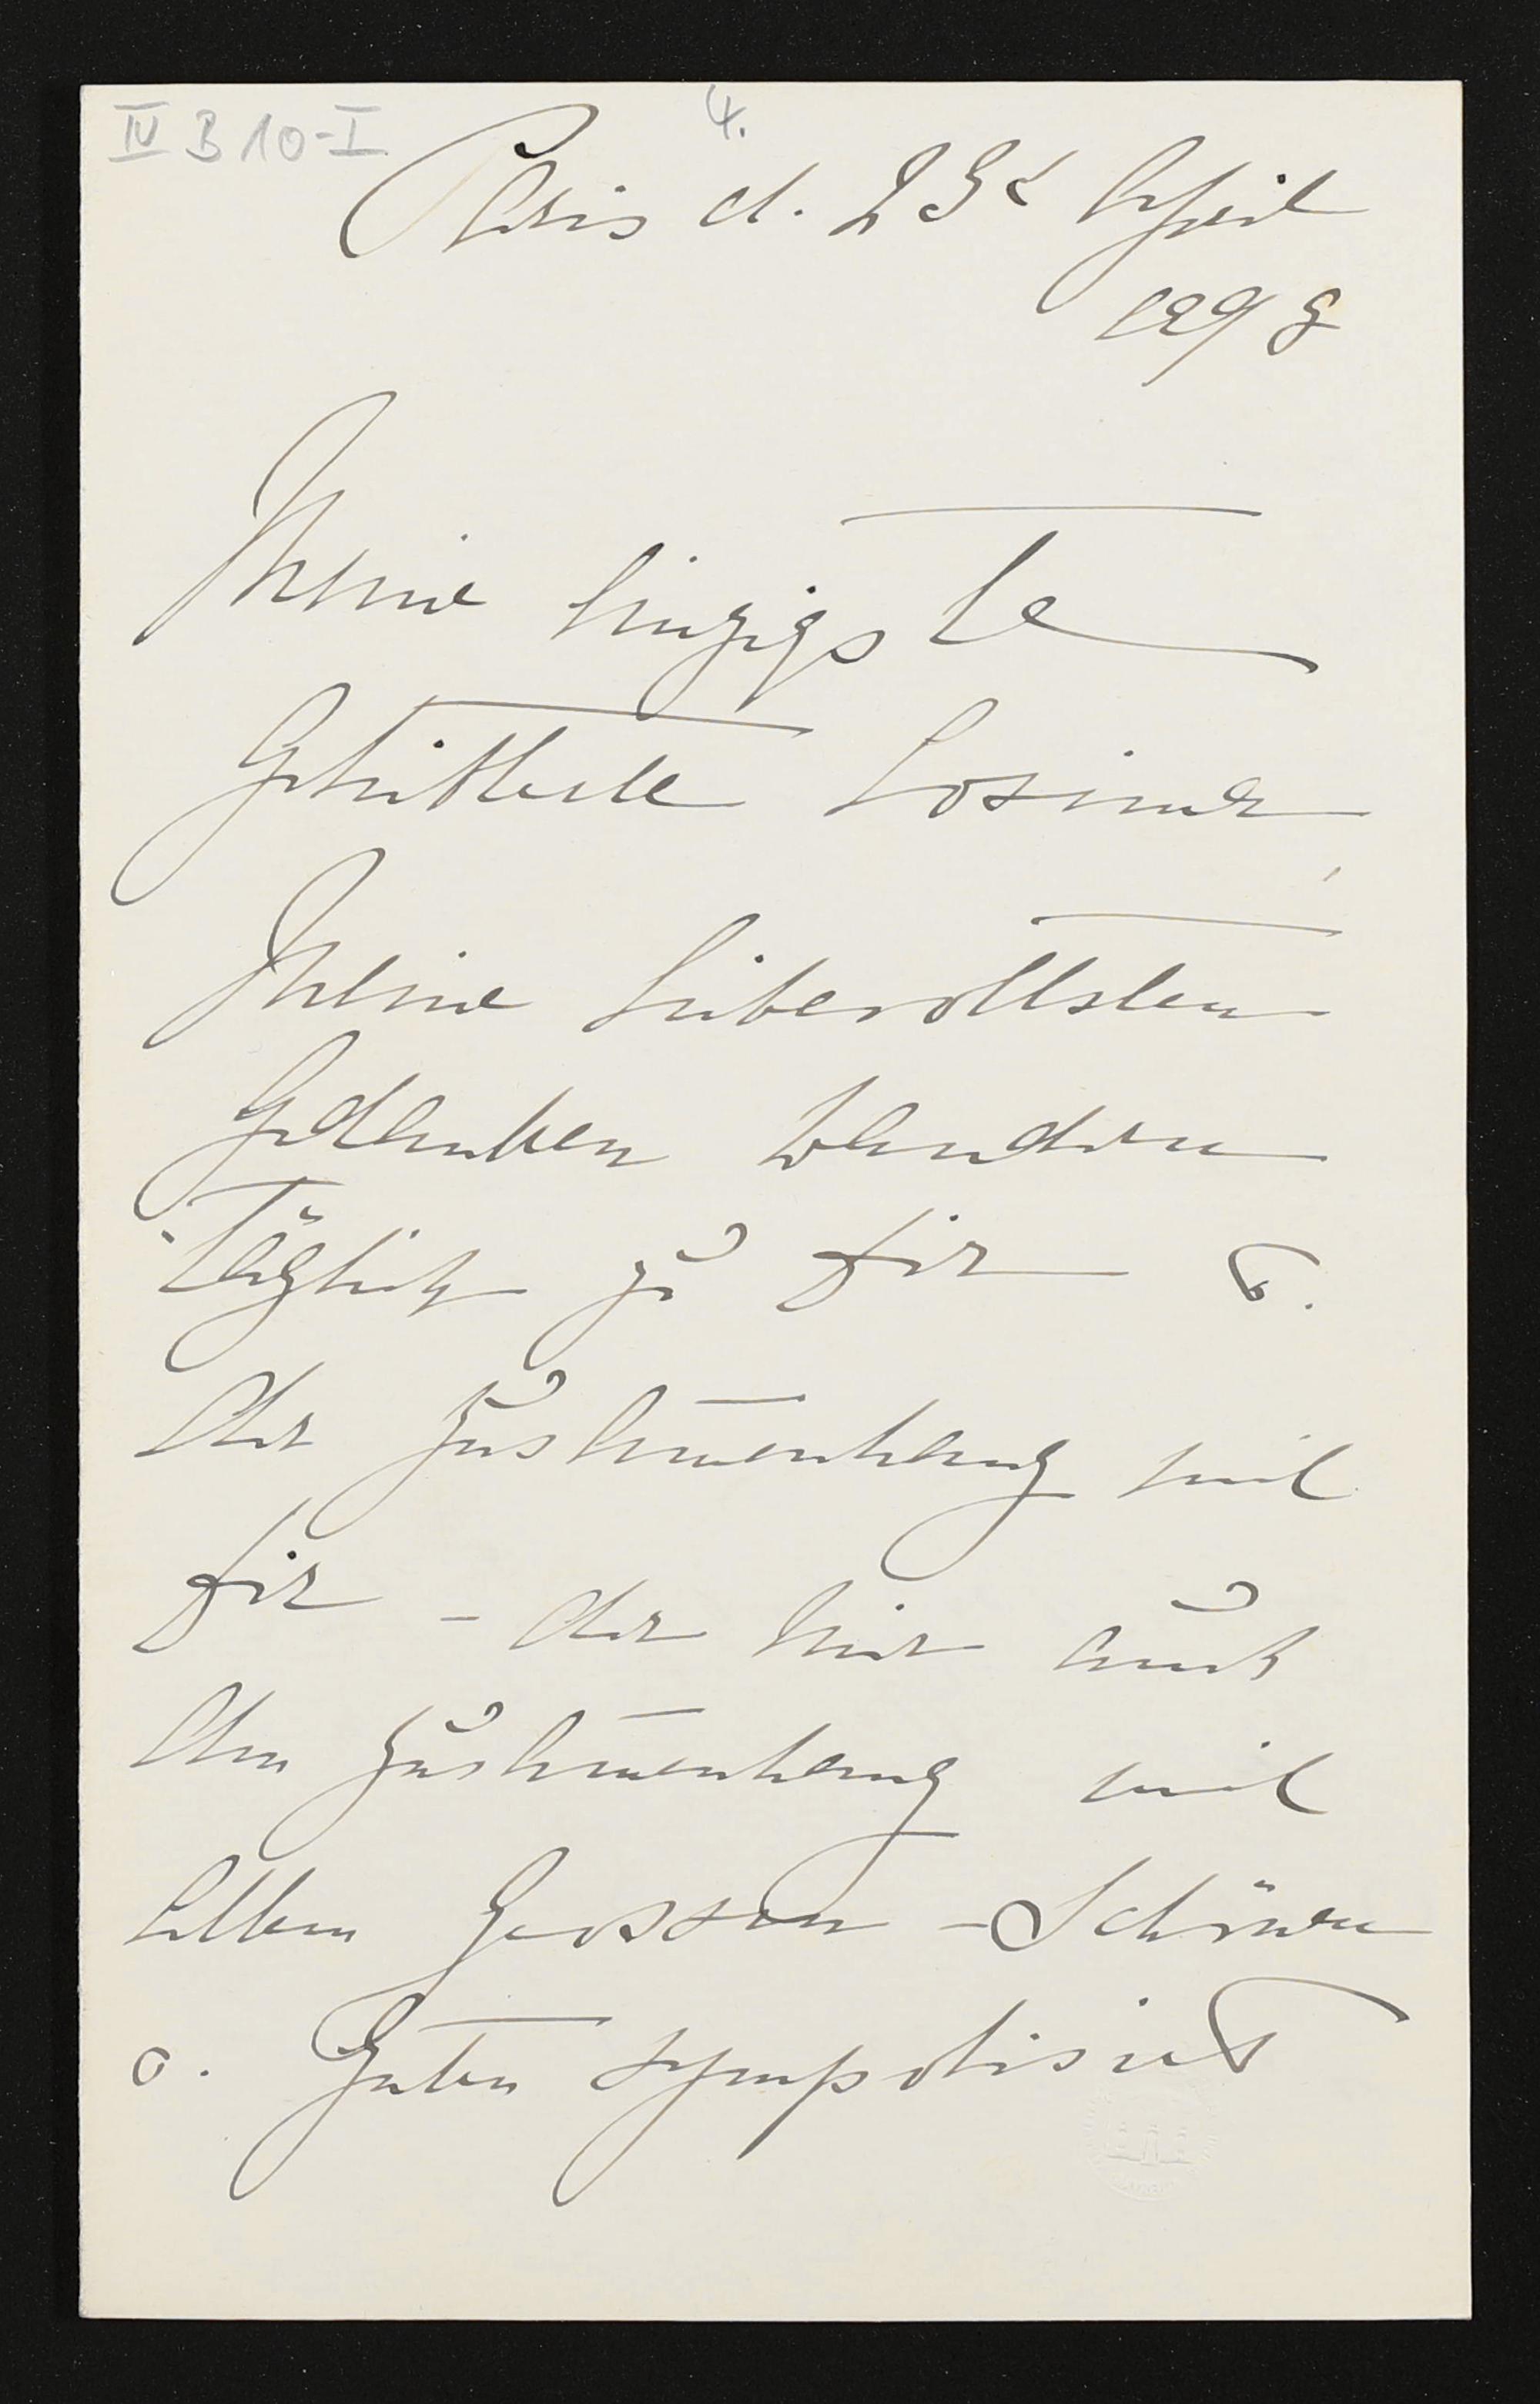 IV B 10-I
4.
Paris d. 23t April
1898
Meine Einzigste
Geliebteste Cosima,
Meine liebevollsten
Gedanken wandern
täglich zu Dir u.
der Zusam̅enhang mit
Dir – der mir auch
den Zusam̅enhang mit
allem Grossen – Schönen
u. Guten symbolisirt